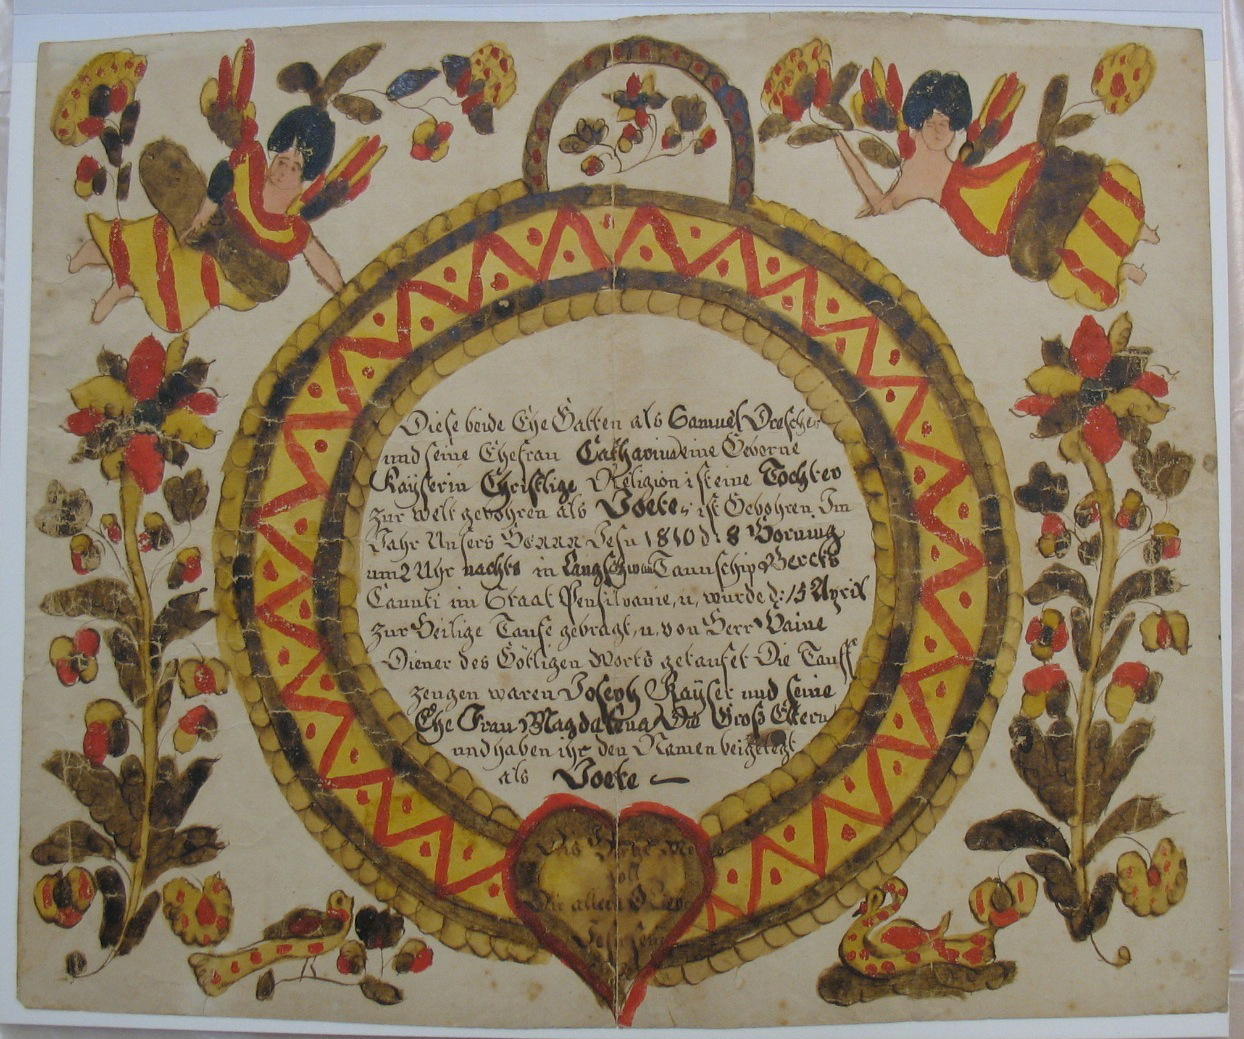 Diese beide Ehe Gatten als Samuel Drescher
und seine Ehefrau Catharina eine Geborne
Kaÿserin Christlige Religion ist eine Tochter
zur welt gebohren als Voeke, ist Gebohren Im
Jahr Unsers Herrn Jesu 1810 d 8 Horning
um 2 Uhr nachts in Taunschip Bercks
Caunti im Staat Pensilvanie, u, wurde d: 15 April
zur Heilige Taufe gebragt, u, von Herr
Diener des Götligen Worts getaufet Die Tauff
zeugen waren Joseph Kaÿser und seine
Ehe Frau Magdalena Die Groß Eltern
und haben ihr den Namen beigelegt
als Voeke